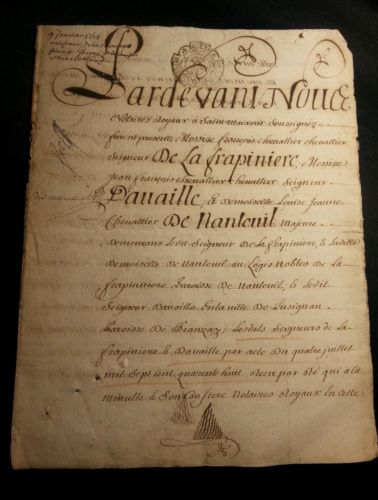 9 Janvier 1754
Pardevant Nous
Notaires Royaux à Saint maixent Soussignez
furent presents Messire françois chevallier chevallier
Seigneur De La frapiniere, Messire
Jean françois chevallier chevallier Seigneur
Davaille, Et Demoiselle Louise Jeanne
Chevallier De Nanteuil Majeure
Demeurans Ledit Seigneur De La frapiniere, & Laditte
Demoiselle De Nanteuil au Logis Nobles De La
frapiniere Paroisse De Nanteuil, & Le dit
Seigneur Davaille En La ville De Lusignan
Paroisse De; Lesdits Seigneurs De La
frapiniere & Davaille, par acte Du quatre juillet
mil Sept Cent quarente huit Receu par Ré qui a la
minutte & Son Confrere Notaires Royaux En Cette